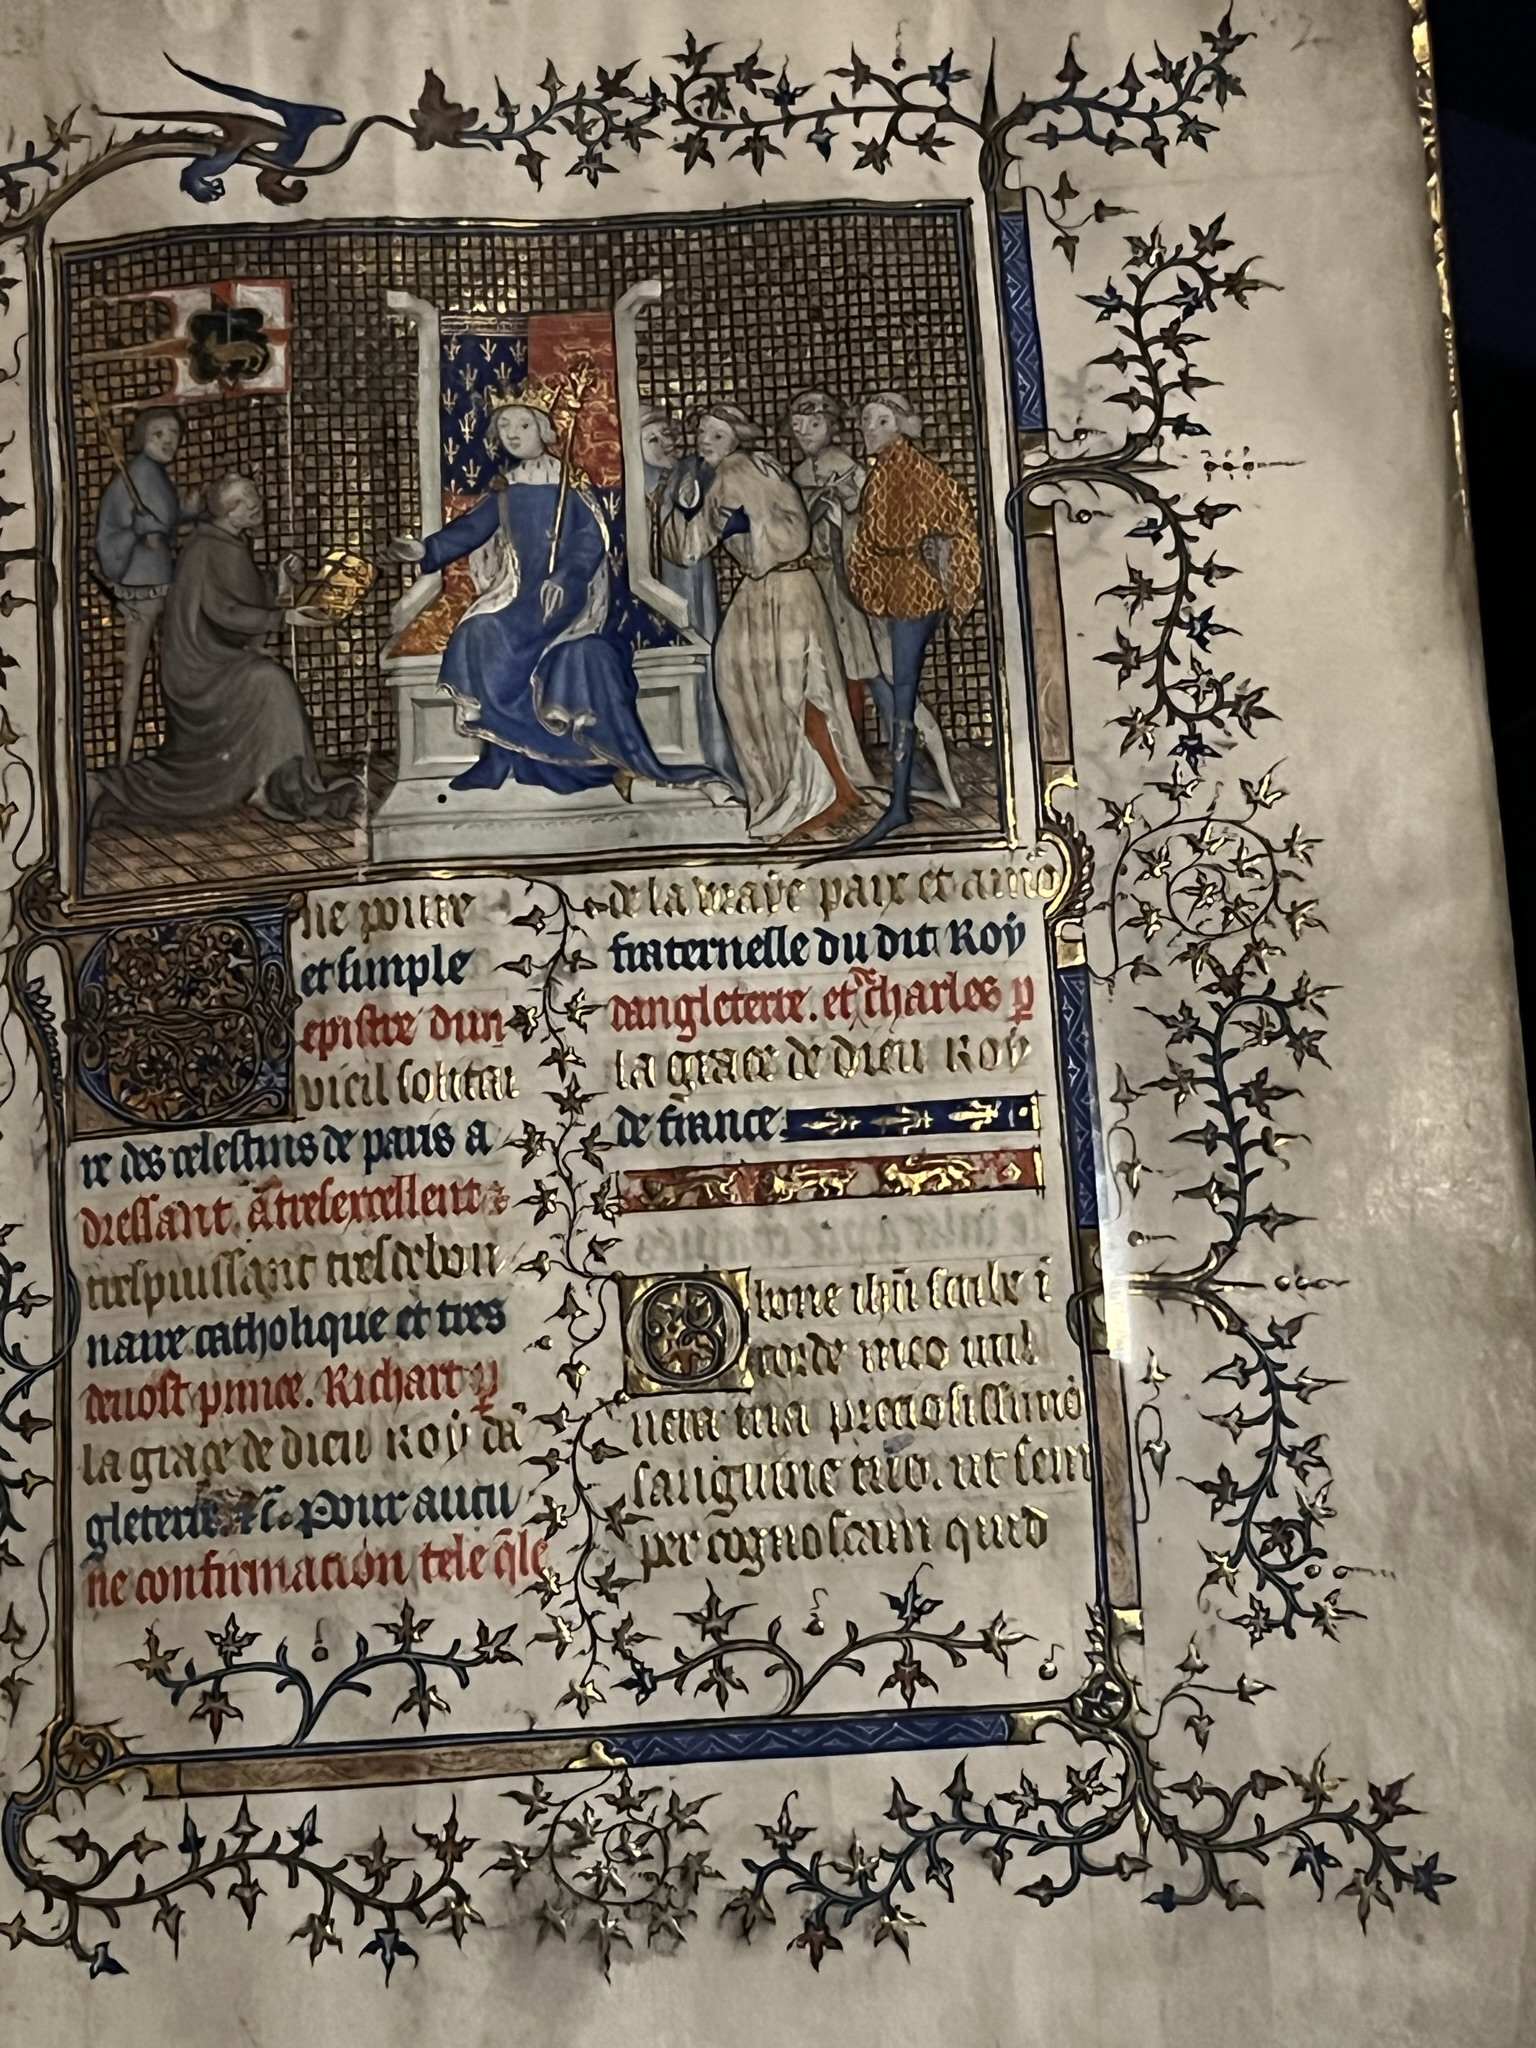 Vne poure
et simple
epistre dun
vieil solitai
re des celestins de paris a
dressant. a tresexcellent
trespuissant tresdebon
naire catholique et tres
deuost prince. Richart p̱
la grace de dieu Roy dā
gleterre. &c̄. Pour aucu
ne confirmacion tele q̄le
de la vraye paix et amo
fraternelle du dit Roy
dangleterre. et Charles p̱
la grace de dieu Roy
de france.
O bone ihū scribe ī
corde meo uul
nera tua preciosissimo
sanguine tuo. ut sem
per cognoscam quid